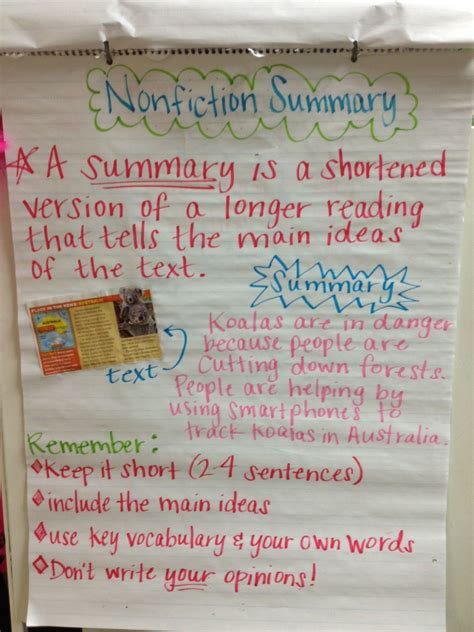 Nonfiction Summary
A summary is a shortened
version of a longer reading
that tells the main ideas
of the text.
Summary
text
Koalas are in danger
because people are
cutting down forests.
People are helping by
using smartphones to
track koalas in Australia.
Remember:
Keep it short (2-4 sentences)
include the main ideas
use key vocabulary & your own words
Don't write your opinions!